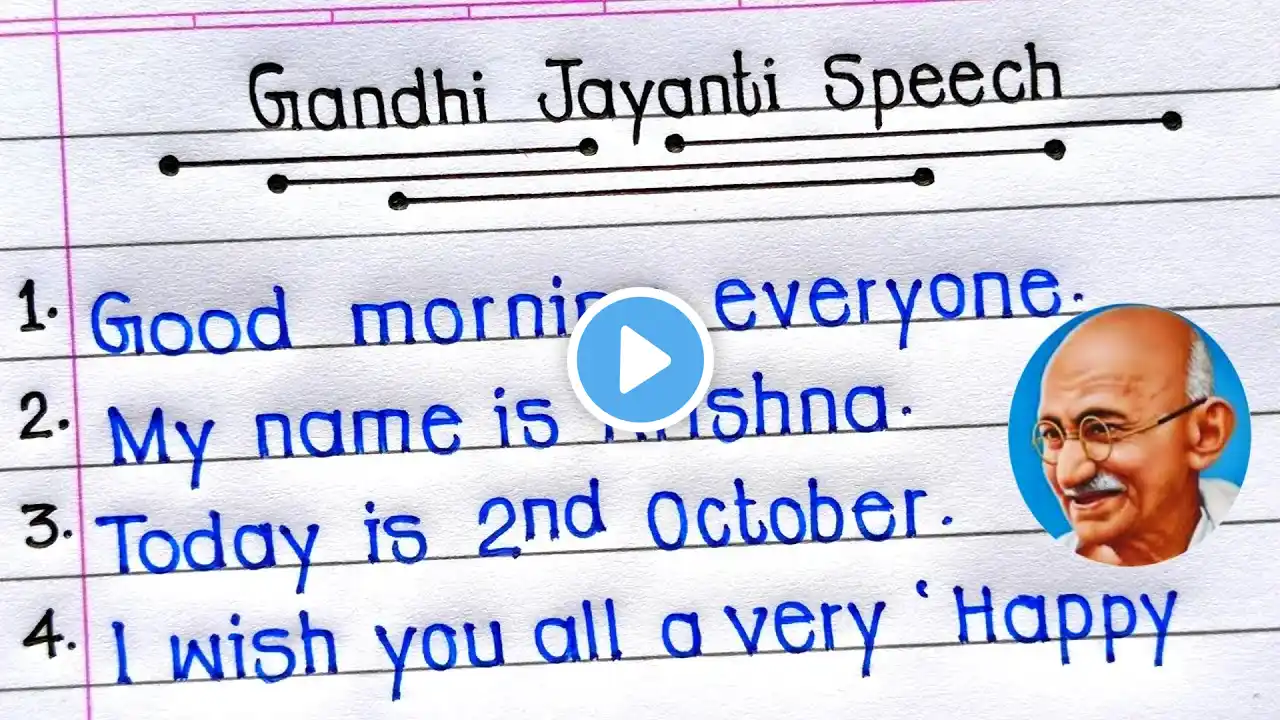 Gandhi Jayanti Speech
1. Good morning everyone.
2. My name is Krishna.
3. Today is 2nd October.
4. I wish you all a very ‘Happy